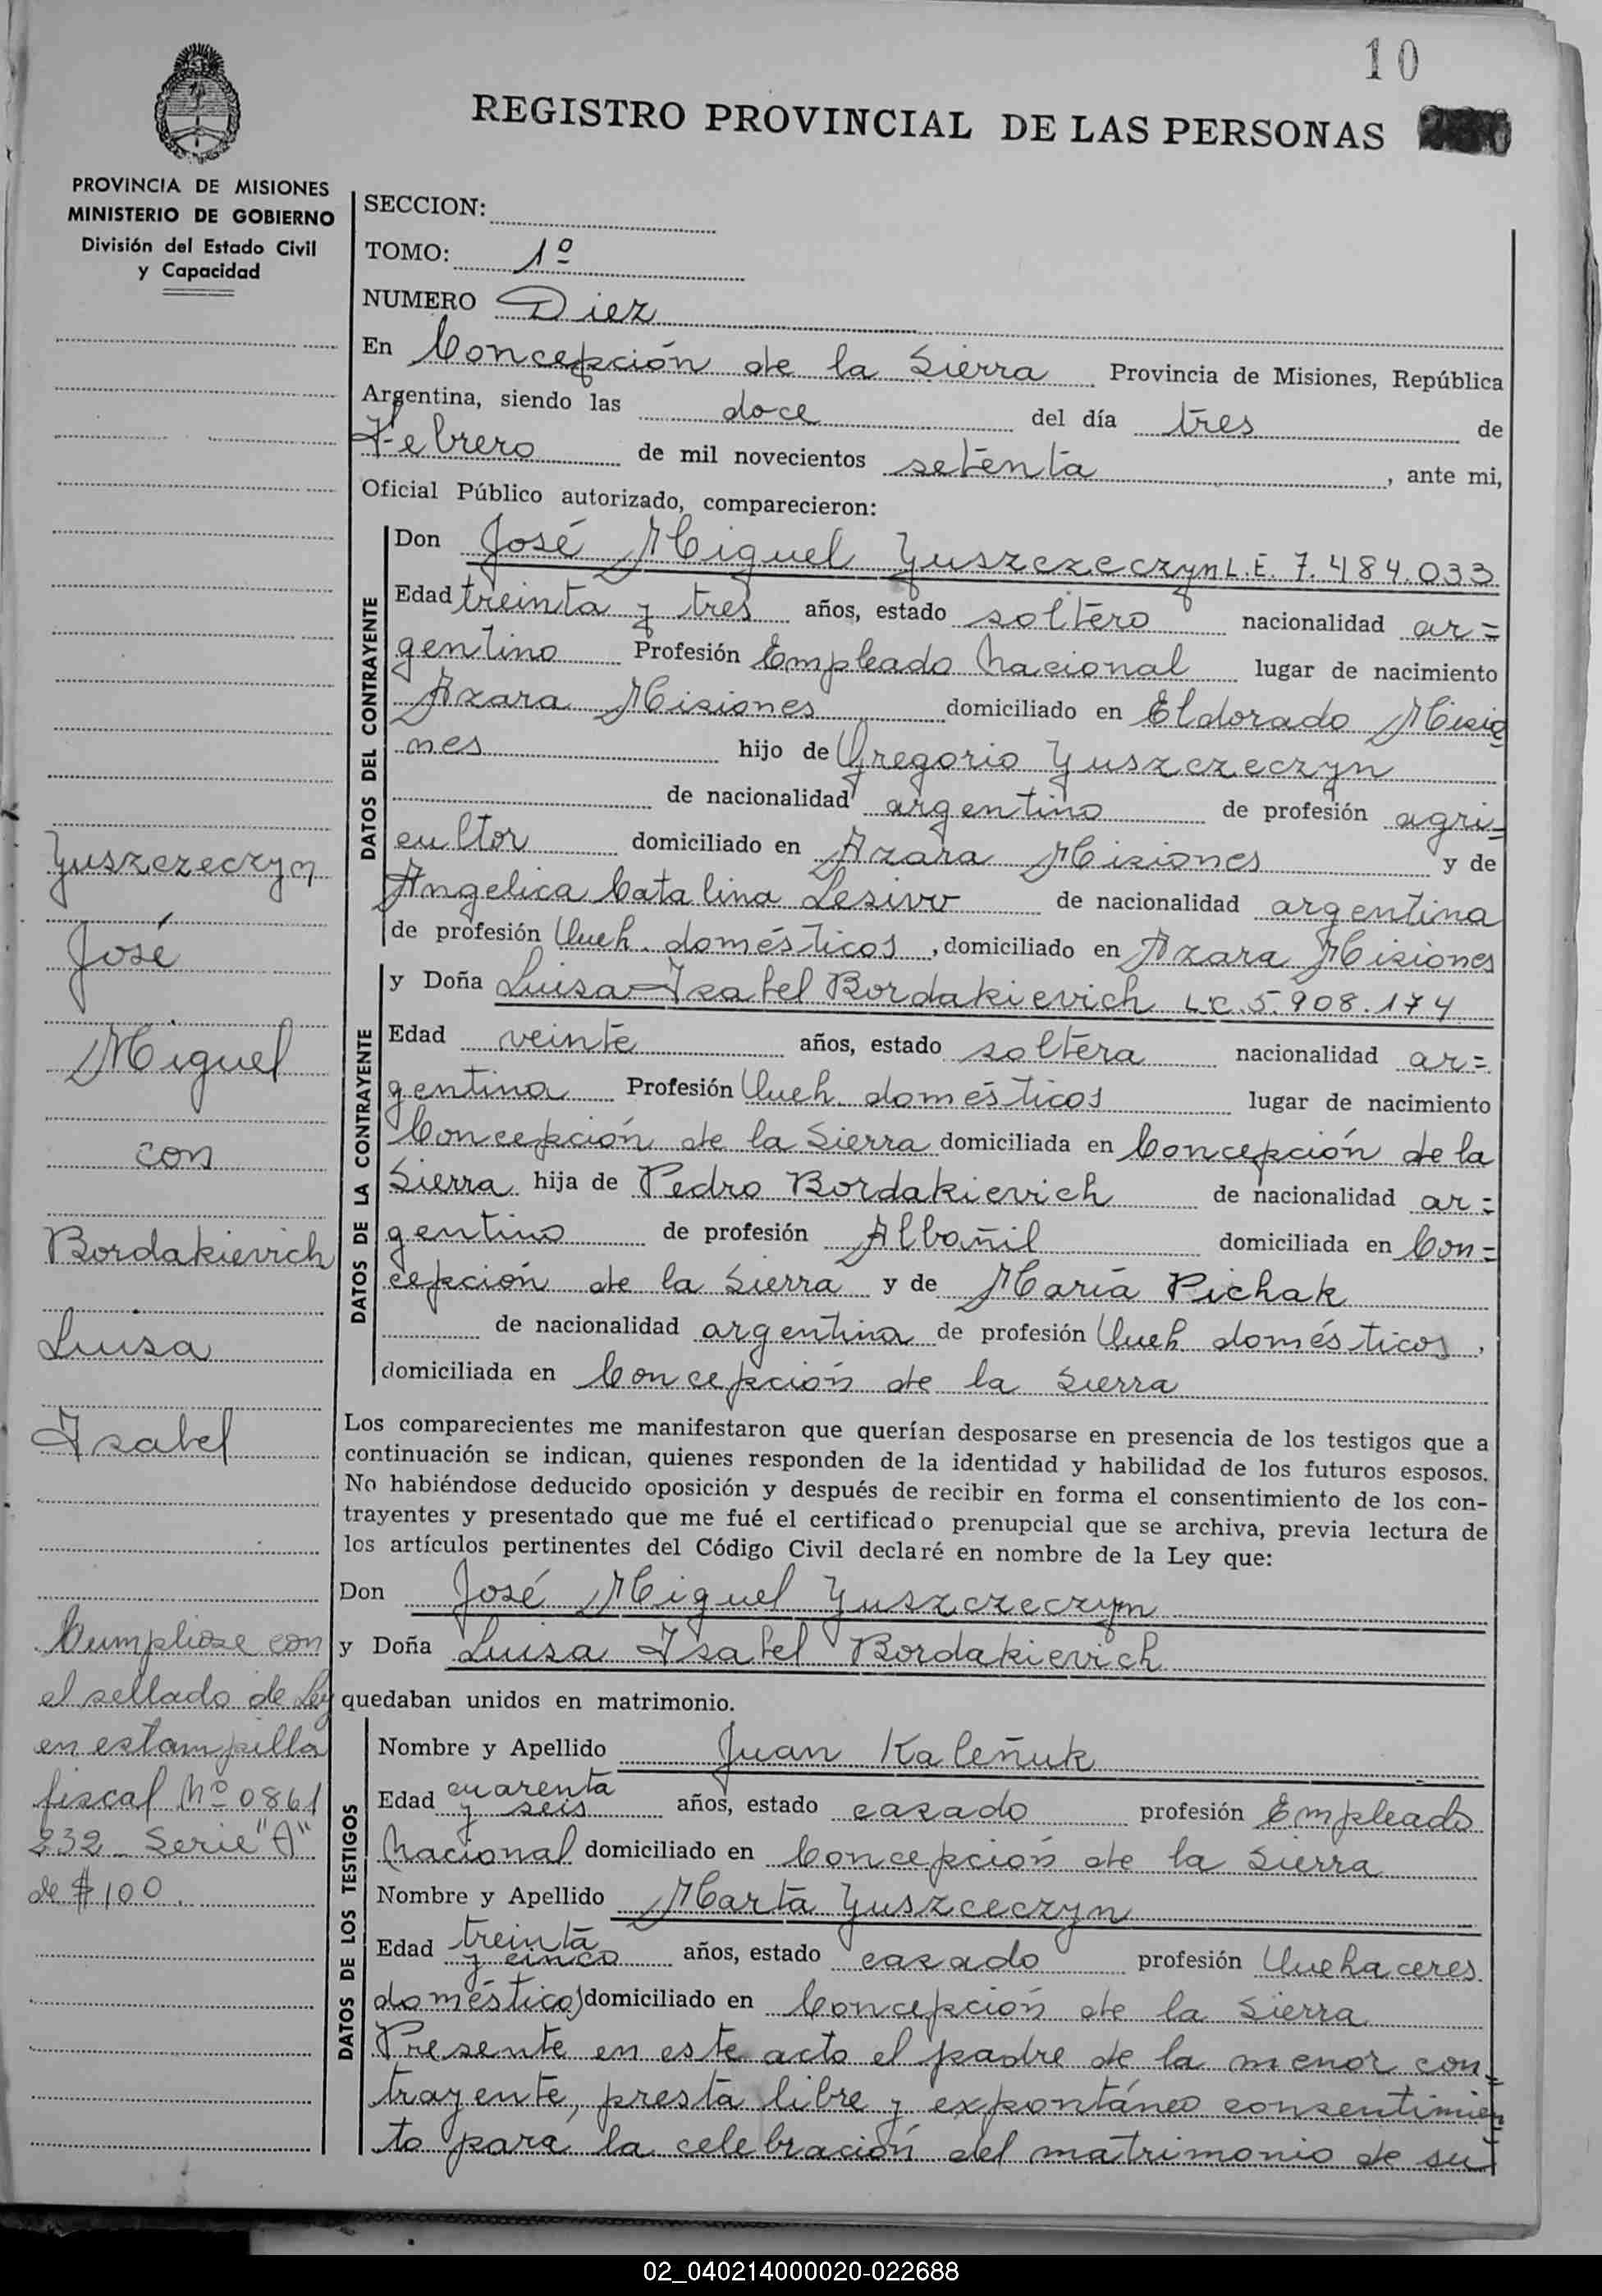 10
REGISTRO PROVINCIAL DE LAS PERSONAS
PROVINCIA DE MISIONES
MINISTERIO DE GOBIERNO
División del Estado Civil
y Capacidad
SECCION:
TOMO: 1º
NUMERO Diez
En Concepción de la Sierra Provincia de Misiones, República
Argentina, siendo las doce del día tres de
Febrero de mil novecientos setenta, ante mi,
Oficial Público autorizado, comparecieron:
DATOS DEL CONTRAYENTE
Don José Miguel Yuszczeczyn L.E. 7.484.033
Edad treinta y tres años, estado soltero nacionalidad ar=
gentino Profesión Empleado Nacional lugar de nacimiento
Azara Misiones domiciliado en Eldorado Misio
nes hijo de Gregorio Yuszczeczyn
de nacionalidad argentino de profesión agri=
cultor domiciliado en Azara Misiones y de
Angelica Catalina Lesivv de nacionalidad argentina
de profesión Queh. domésticos, domiciliado en Azara Misiones
DATOS DE LA CONTRAYENTE
y Doña Luisa Isabel Bordakievich L.C. 5.908.174
Edad veinte años, estado soltera nacionalidad ar=
gentina Profesión Queh. domésticos lugar de nacimiento
Concepción de la Sierra domiciliada en Concepción de la
Sierra hija de Pedro Bordakievich de nacionalidad ar=
gentino de profesión Albañil domiciliada en Con=
cepción de la Sierra y de María Pichak
de nacionalidad argentina de profesión Queh. domésticos,
domiciliada en Concepción de la Sierra
Los comparecientes me manifestaron que querían desposarse en presencia de los testigos que a
continuación se indican, quienes responden de la identidad y habilidad de los futuros esposos.
No habiéndose deducido oposición y después de recibir en forma el consentimiento de los con-
trayentes y presentado que me fué el certificado prenupcial que se archiva, previa lectura de
los artículos pertinentes del Código Civil declaré en nombre de la Ley que:
Don José Miguel Yuszczeczyn
y Doña Luisa Isabel Bordakievich
quedaban unidos en matrimonio.
DATOS DE LOS TESTIGOS
Nombre y Apellido Juan Kaleñuk
Edad cuarenta y seis años, estado casado profesión Empleado
Nacional domiciliado en Concepción de la Sierra
Nombre y Apellido Marta Yuszceczyn
Edad treinta y cinco años, estado casado profesión Quehaceres
domésticos domiciliado en Concepción de la Sierra
Presente en este acto el padre de la menor con=
trayente, presta libre y expontáneo consentimien
to para la celebración del matrimonio de su
Yuszczeczyn
José
Miguel
con
Bordakievich
Luisa
Isabel
Cumpliose con
el sellado de Ley
en estampilla
fiscal Nº 0861
232 - Serie "A"
de $ 100.
02_040214000020-022688